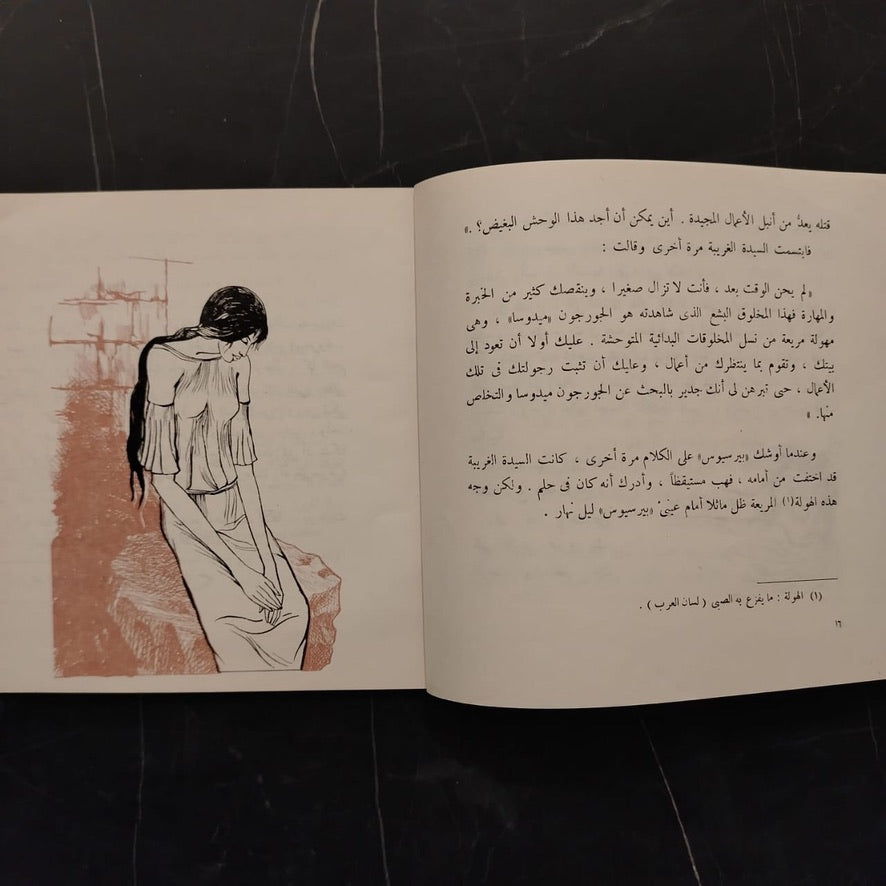 قتله يعدُّ من أنبل الأعمال المجيدة . أين يمكن أن أجد هذا الوحش البغيض؟ . »
فابتسمت السيدة الغريبة مرة أخرى وقالت :
« لم يحن الوقت بعد ، فأنت لا تزال صغيرا ، وينقصك كثير من الخبرة
والمهارة فهذا المخلوق البشع الذى شاهدته هو الجورجون «ميدوسا» ، وهى
مهولة مريعة من نسل المخلوقات البدائية المتوحشة . عليك أولا أن تعود إلى
بيتك ، وتقوم بما ينتظرك من أعمال ، وعليك أن تثبت رجولتك فى تلك
الأعمال ، حتى تبرهن لى أنك جدير بالبحث عن الجورجون ميدوسا والتخلص
منها. »
وعندما أوشك «بيرسيوس» على الكلام مرة أخرى ، كانت السيدة الغريبة
قد اختفت من أمامه ، فهب مستيقظاً ، وأدرك أنه كان فى حلم . ولكن وجه
هذه الهولة(١) المريعة ظل ماثلا أمام عينىْ «بيرسيوس» ليل نهار .
(١) الهولة : ما يفزع به الصبى ( لسان العرب ) .
١٦